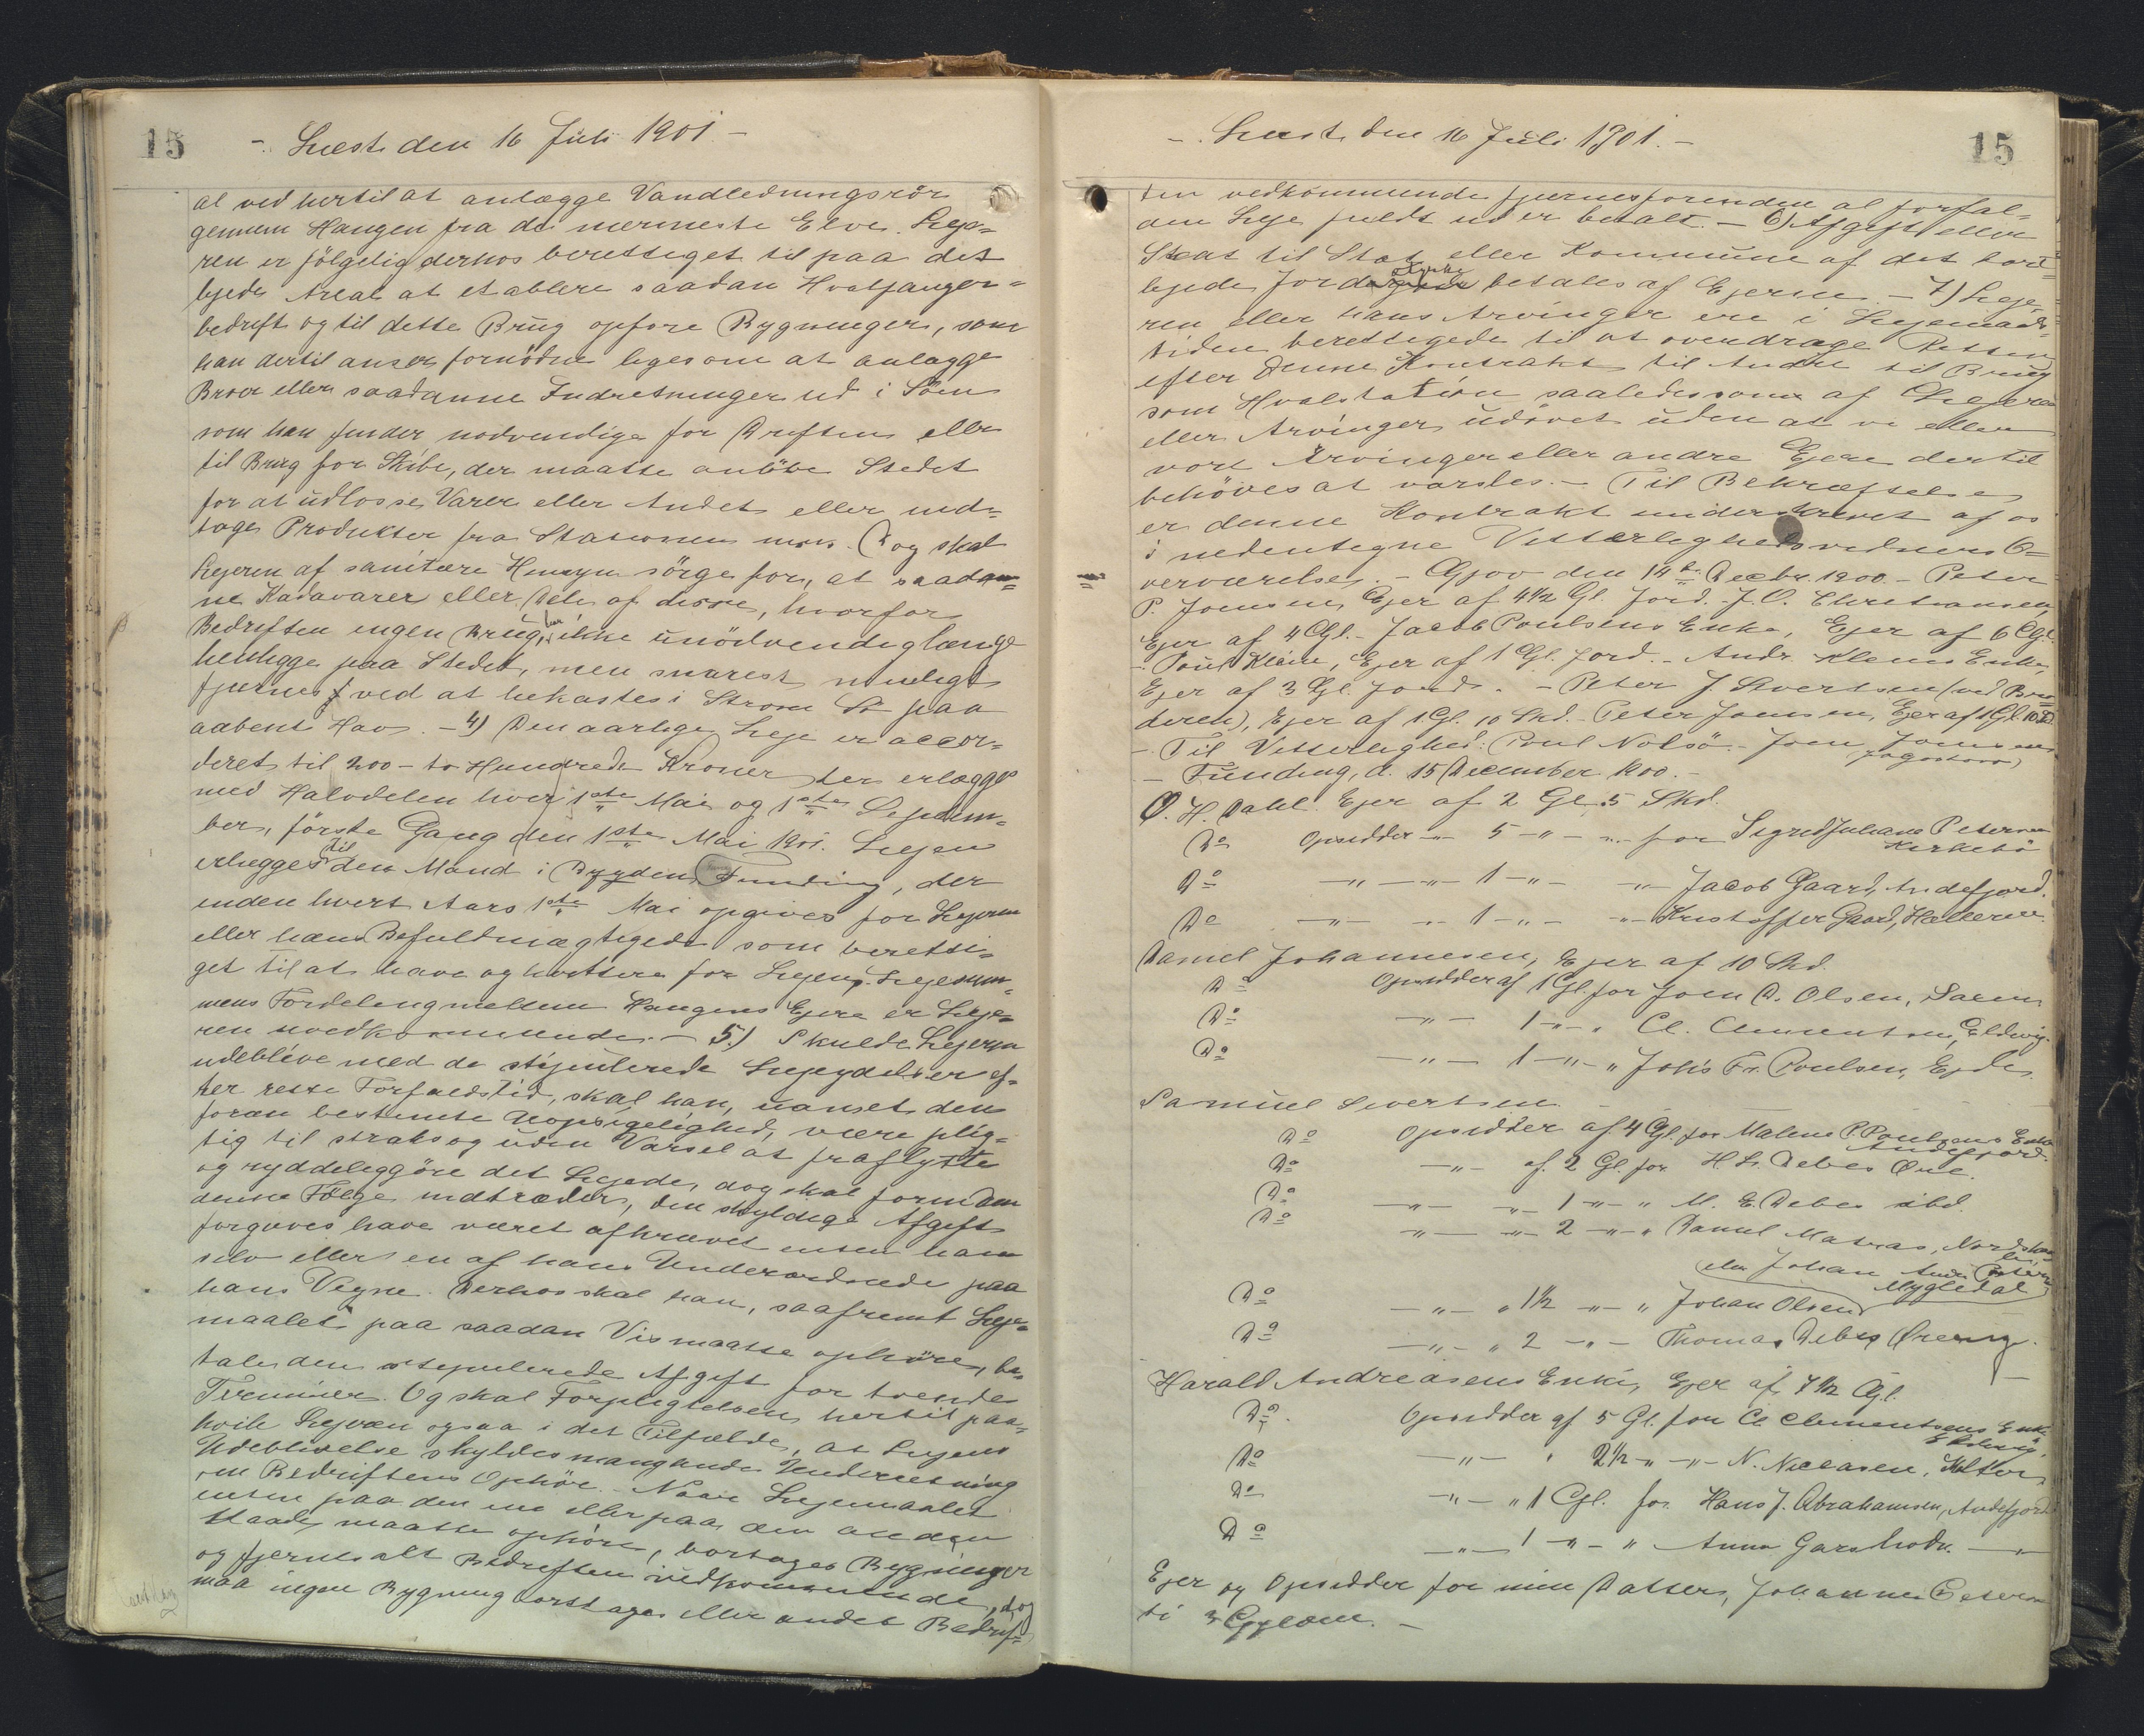 15
- Læst den 16 Juli 1901 -
al ved hertil at anlægge Vandledningsrör
gennem Haugen fra de nærmeste Elve. Leje=
ren er fölgelig derhos berettiget til paa det
lejede Areal at etablere saadan Hvalfanger=
bedrift og til dette Brug opføre Bygninger, som
han dertil anser fornödne ligesom at anlægge
Broer eller saadanne Indretninger ud i Söen
som han finder nødvendige for Driften eller
til Brug for Skibe, der maatte anlöbe Stedet
for at udlosse Varer eller Andet eller ind=
tage Produkter fra Stationen m.m. Dog skal
Lejeren af sanitære Hensyn sörge for, at saadan=
ne Kadavarer eller Dele af disse, hvorfor
Bedriften ingen Brug har, ikke unödvendig længe
henligge paa Stedet, men snarest muligt
fjernes ved at henkastes i Strøm paa
aabent Hav. - 4) Den aarlige Leje er accor=
deret til 200 - to Hundrede Kroner der erlægges
med Halvdelen hver 1ste Mai og 1ste Septem=
ber, første Gang den 1ste Mai 1901. Lejen
erlægges til den Mand i Bygden Funding, der
inden hvert Aars 1ste Mai opgives for Lejeren
eller hans Befuldmægtigede som beretti=
get til at have og kvittere for Lejen. Lejesum=
mens Fordeling mellem Haugens Ejere er Leje=
ren uvedkommende. - 5.) Skulde Lejeren
udeblive med de stipulerede Lejeydelser ef=
ter rette Forfaldstid, skal han, uanset den
foran bestemte Uopsigelighed, være plig=
tig til straks og uden Varsel at fraflytte
og ryddeliggöre det Lejede, dog skal forinden
denne Følge indtræder, den skyldige Afgift
forgæves have været afkrævet enten ham
selv eller en af hans Underordnede paa
hans Vegne. Derhos skal han, saafremt Leje=
maalet paa saadan Vis maatte ophöre, be=
tale den stipulerede Afgift for tvende
Terminer. Og skal Forpligtelsen hertil paa=
hvile Lejeren ogsaa i det Tilfælde, at Lejens
Udeblivelse skyldes manglende Underretning
om Bedriftens Ophör. Naar Lejemaalet
enten paa den ene eller paa den anden
Maade maatte ophöre, bortages Bygninger
og fjernes alt Bedriften vedkommende, dog
maa ingen Bygning borttages eller andet Bedrif=
15
- Læst den 16 Juli 1901. -
ten vedkommende fjernes forinden al forfal=
den Leje fuldt ud er betalt. - 6) Afgift eller
Skat til Stat eller Kommune af det bort=
lejede Jord betales af Ejerne. - 7) Leje=
ren eller hans Arvinger ere i Lejemaals=
tiden berettigede til at overdrage Retten
efter denne Kontrakt til Andre til Brug
som Hvalstation saaledes som af Lejeren
eller Arvinger udövet uden at vi eller
vore Arvinger eller andre Ejere dertil
behöves at varsles. - Til Bekræftelse
er denne Kontrakt underskrevet af os
i nedentegne Vitterlighedsvidners O=
verværelse. - Gjov den 14de Decbr. 1900. - Peter
P. Joensen, Ejer af 4½ Gl. Jord. - J. O. Christiansen
Ejer af 4 Gl. - Jacob Poulsens Enke, Ejer af 6 Gl.
- Poul Klein, Ejer af 1 Gl. Jord. - Andr. Klems Enke,
Ejer af 3 Gl. Jord. - Peter J. Sivertsen (ved Bro
deren), Ejer af 1 Gl. 10 Skd. - Peter Joensen, Ejer af 1 Gl. 10 Sk.
- Til Vitterlighed: Poul Nolsö. - Joen Joensen
(Jogvstovo)
- Funding, d. 15 December 1900. -
O. H. Dahl. Ejer af 2 Gl. 5 Skd.
Do Opsidder -"- 5 -"- -"- for Sigrid Juliane Petersen
Kirkebö
Do -"- -"- 1 -"- -"- Jacob Gaard, Andefjord.
Do -"- -"- 1 -"- -"- Kristoffer Gaard, Hellerne
Daniel Johannesen, Ejer af 10 Skd.
Do Opsidder af 1 Gl. for Joen D. Olsen, Saxen
Do -"- 1 -"- " Cl. Clementsen, Eldvig.
Do -"- 1 -"- " Johs Fr. Poulsen, Ejde
Samuel Sivertsen
Do Opsidder af 4 Gl. for Malene P. Poulsens Enke
Andefjord.
Do -"- af 2 Gl. for H. L. Debes Øre.
Do -"- -"- 1 -"- " M. E. Debes ibd.
Do -"- -"- 2 -"- " Daniel Matras, Nordska
le,
eller Johan Andr. Peters
Mygledal
Do -"- " 1½ -"- " Johan Olsen
Do -"- " 2 -"- Thomas Debes Øreng.
Harald Andreasens Enke, Ejer af 7½ Gl.
Do. Opsidder af 5 Gl. for Cl. Clementsens Enke
Eldvig.
Do -"- " 2½ -"- N. Niclasen, Kolter
Do -"- " 1 Gl. for Hans J. Abrahamsen, Andefjord
Do -"- 1 -"- " Anna Garshodn. -"-
Ejer og Opsidder for min Datter, Johanne Petersen
ti Gylden. -